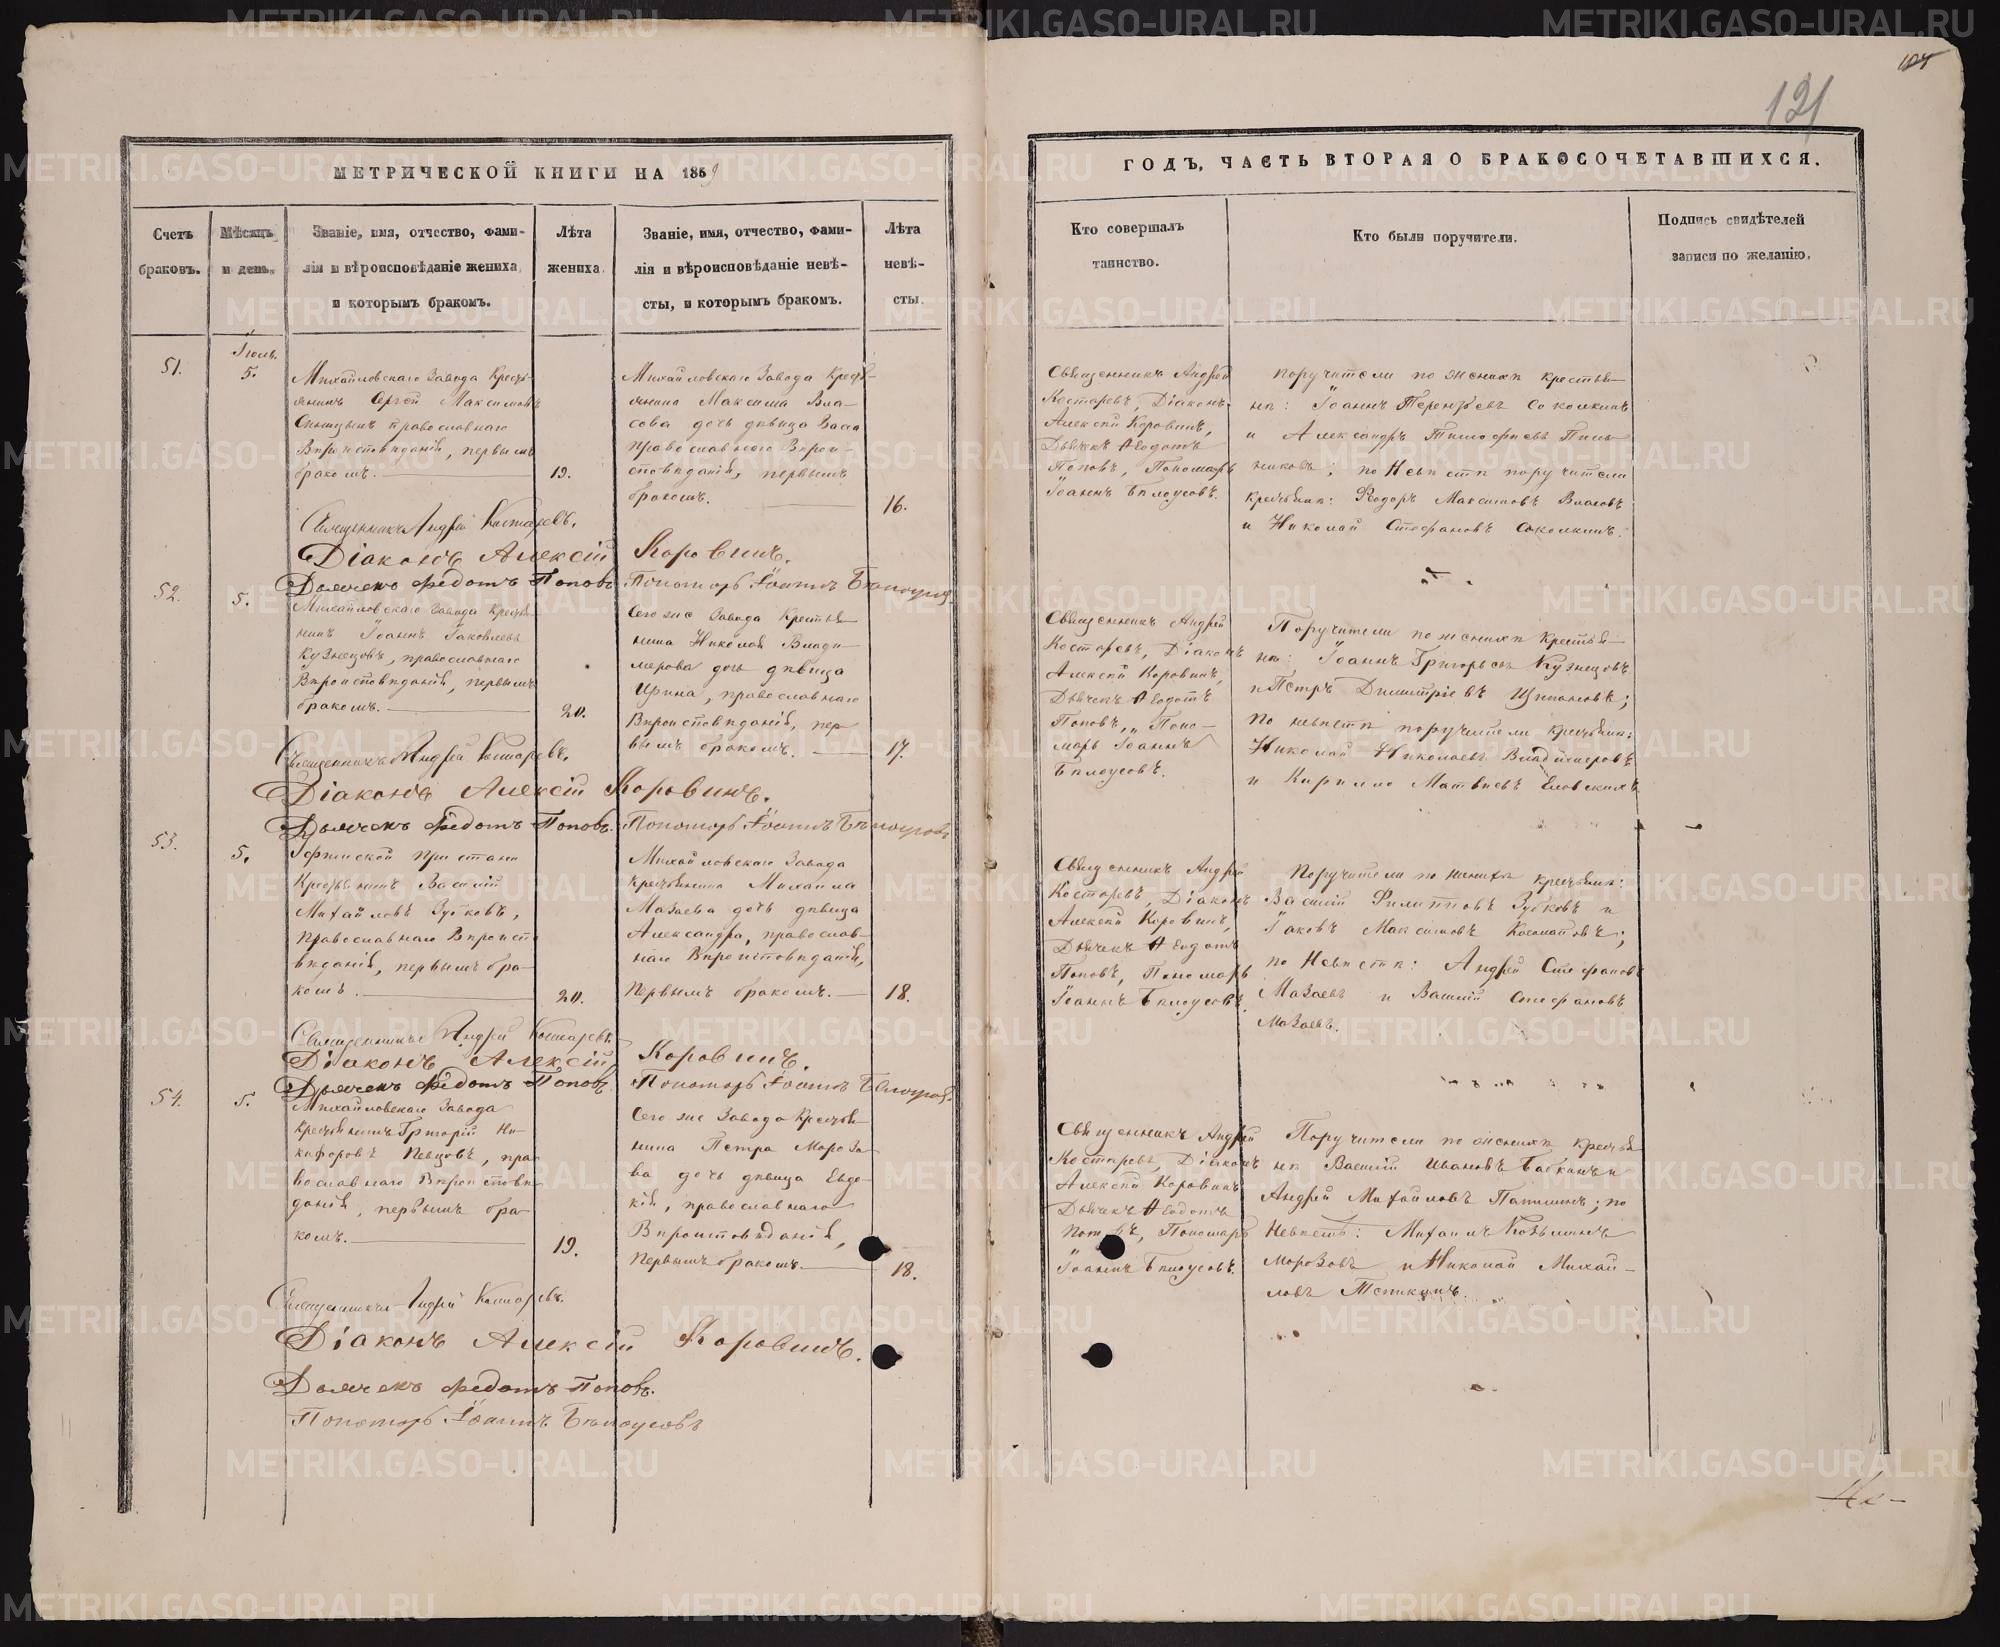 121
МЕТРИЧЕСКОЙ КНИГИ НА 1859
ГОДЪ, ЧАСТЬ ВТОРАЯ О БРАКОСОЧЕТАВШИХСЯ.
Счетъ
браковъ.
Мѣсяцъ
и день.
Званіе, имя, отчество, фами-
лія и вѣроисповѣданіе жениха,
и которымъ бракомъ.
Лѣта
жениха.
Званіе, имя, отчество, фами-
лія и вѣроисповѣданіе невѣ-
сты, и которымъ бракомъ.
Лѣта
невѣ-
сты.
Кто совершалъ
таинство.
Кто были поручители.
Подпись свидѣтелей
записи по желанію.
51.
Іюль.
5.
Михайловскаго Завода Кресть-
янинъ Сергѣй Максимовъ
православнаго
Вѣроисповѣданія, первымъ
бракомъ.
19.
Михайловскаго Завода Кресть-
янина Максима Вла-
сова дочь дѣвица
Православнаго Вѣрои-
сповѣданія, первымъ
бракомъ.
16.
Священникъ Андрей
Костаревъ, Діаконъ
Алексѣй Коровинъ,
Дьячекъ Ѳеодотъ
Поповъ, Пономарь
Іоаннъ Бѣлоусовъ.
Поручители по женихѣ крестья-
не: Іоаннъ Терентьевъ Соколкинъ
и Александръ Тимофѣевъ
; по Невѣстѣ поручители
крестьяне: Ѳеодоръ Максимовъ Власовъ
и Николай Стефановъ Соколкинъ.
Священникъ Андрей Костаревъ.
Діаконъ Алексій Коровинъ.
Дьячекъ Федотъ Поповъ. Пономарь Іоаннъ Бѣлоусовъ
52.
5.
Михайловскаго Завода Крестья-
нинъ Іоаннъ Іаковлевъ
Кузнецовъ, православнаго
Вѣроисповѣданія, первымъ
бракомъ.
20.
Сего же Завода Крестья-
нина Николая Влади-
мерова дочь дѣвица
Ирина, православнаго
Вѣроисповѣданія, пер-
вымъ бракомъ.
17.
Священникъ Андрей
Костаревъ, Діаконъ
Алексѣй Коровинъ,
Дьячекъ Ѳеодотъ
Поповъ, Поно-
марь Іоаннъ
Бѣлоусовъ.
Поручители по женихѣ Крестья-
не: Іоаннъ Григорьевъ Кузнецовъ
и Петръ Димитріевъ
по невѣстѣ поручители крестьяне:
Николай Николаевъ Владимеровъ
и Кирилло Матвѣевъ
Священникъ Андрей Костаревъ.
Діаконъ Алексій Коровинъ.
Дьячекъ Федотъ Поповъ. Пономарь Іоаннъ Бѣлоусовъ
53.
5.
Уфимской пристани
Крестьянинъ Василій
Михайловъ Зубковъ,
Православнаго Вѣроиспо-
вѣданія, первымъ бра-
комъ.
20.
Михайловскаго Завода
крестьянина Михаила
Мазаева дочь дѣвица
Александра, православ-
наго Вѣроисповѣданія,
Первымъ бракомъ.
18.
Священникъ Андрей
Костаревъ, Діаконъ
Алексѣй Коровинъ,
Дьячекъ Ѳеодотъ
Поповъ, Пономарь
Іоаннъ Бѣлоусовъ.
Поручители по женихѣ крестьяне:
Василій Филипповъ Зубковъ и
Іаковъ Максимовъ
по Невѣстѣ: Андрей Стефановъ
Мазаевъ и Василій Стефановъ
Мазаевъ.
Священникъ Андрей Костаревъ.
Діаконъ Алексій Коровинъ.
Дьячекъ Федотъ Поповъ. Пономарь Іоаннъ Бѣлоусовъ.
54.
5.
Михайловскаго Завода
крестьянинъ Григорій Ни-
кифоровъ Певцовъ, пра-
вославнаго Вѣроисповѣ-
данія, первымъ бра-
комъ.
19.
Сего же Завода Крестья-
нина Петра Морозо-
ва дочь дѣвица Евдо-
кія, православнаго
Вѣроисповѣданія,
первымъ бракомъ.
18.
Священникъ Андрей
Костаревъ, Діаконъ
Алексѣй Коровинъ
Дьячекъ Ѳеодотъ
Поповъ, Пономарь
Іоаннъ Бѣлоусовъ.
Поручители по женихѣ крестья-
не Василій Ивановъ Бабкинъ и
Андрей Михайловъ ; по
Невѣстѣ: Михаилъ Козьминъ
Морозовъ и Николай Михай-
ловъ
Священникъ Андрей Костаревъ.
Діаконъ Алексій Коровинъ.
Дьячекъ Федотъ Поповъ.
Пономарь Іоаннъ Бѣлоусовъ
METRIKI.GASO-URAL.RU